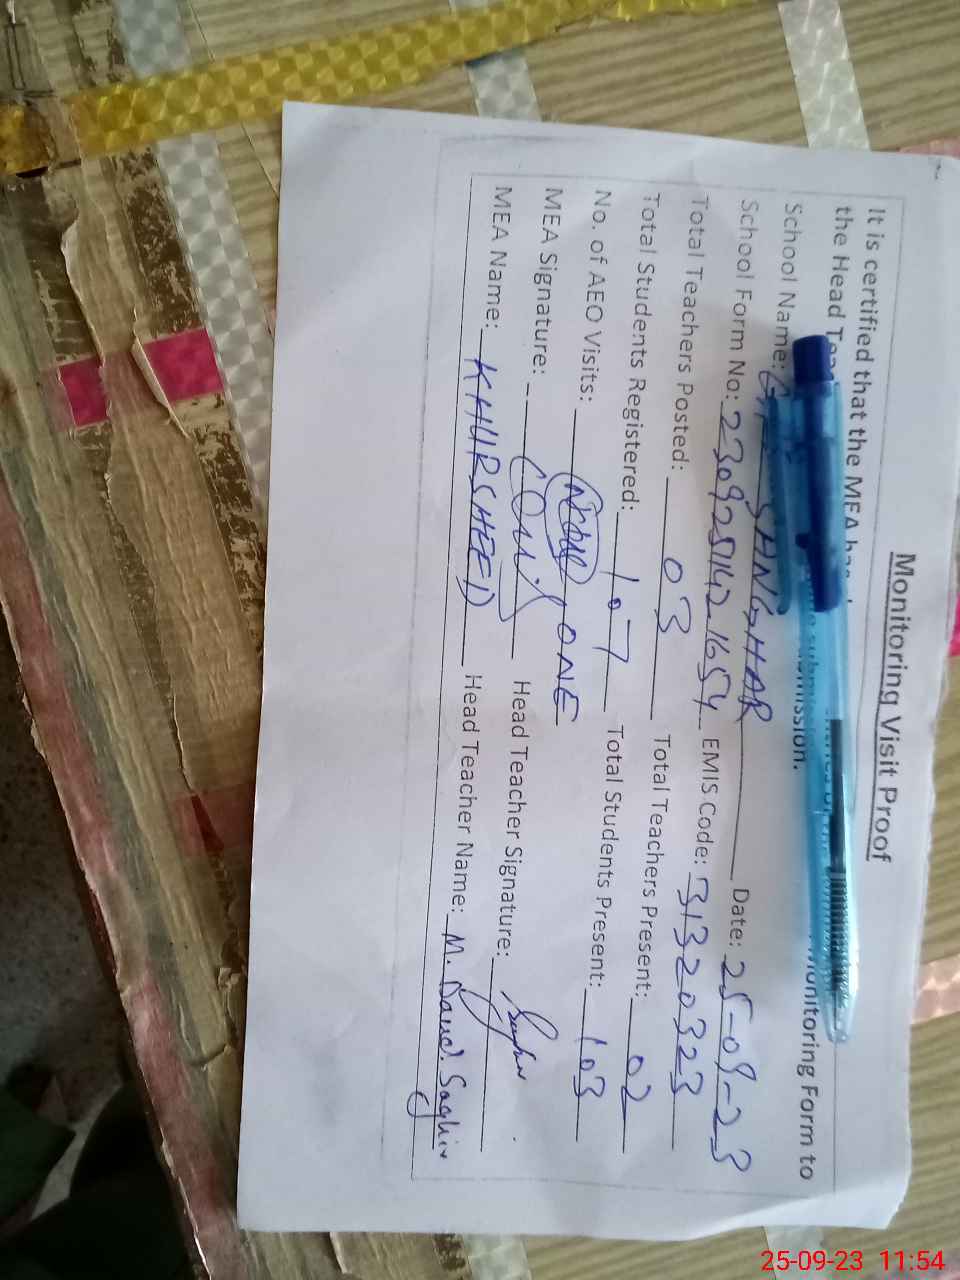 Monitoring Visit Proof
It is certified that the MEA Monitoring Form to
the Head submission.
School Name: SANGHAR Date: 25-09-23
School Form No: 2309251421654 EMIS Code: 31320323
Total Teachers Posted: 03 Total Teachers Present: 02
Total Students Registered: 107 Total Students Present: 103
No. of AEO Visits: ONE
MEA Signature: Head Teacher Signature:
MEA Name: KHURSHEED Head Teacher Name: M. Daud Saghir
25-09-23 11:54